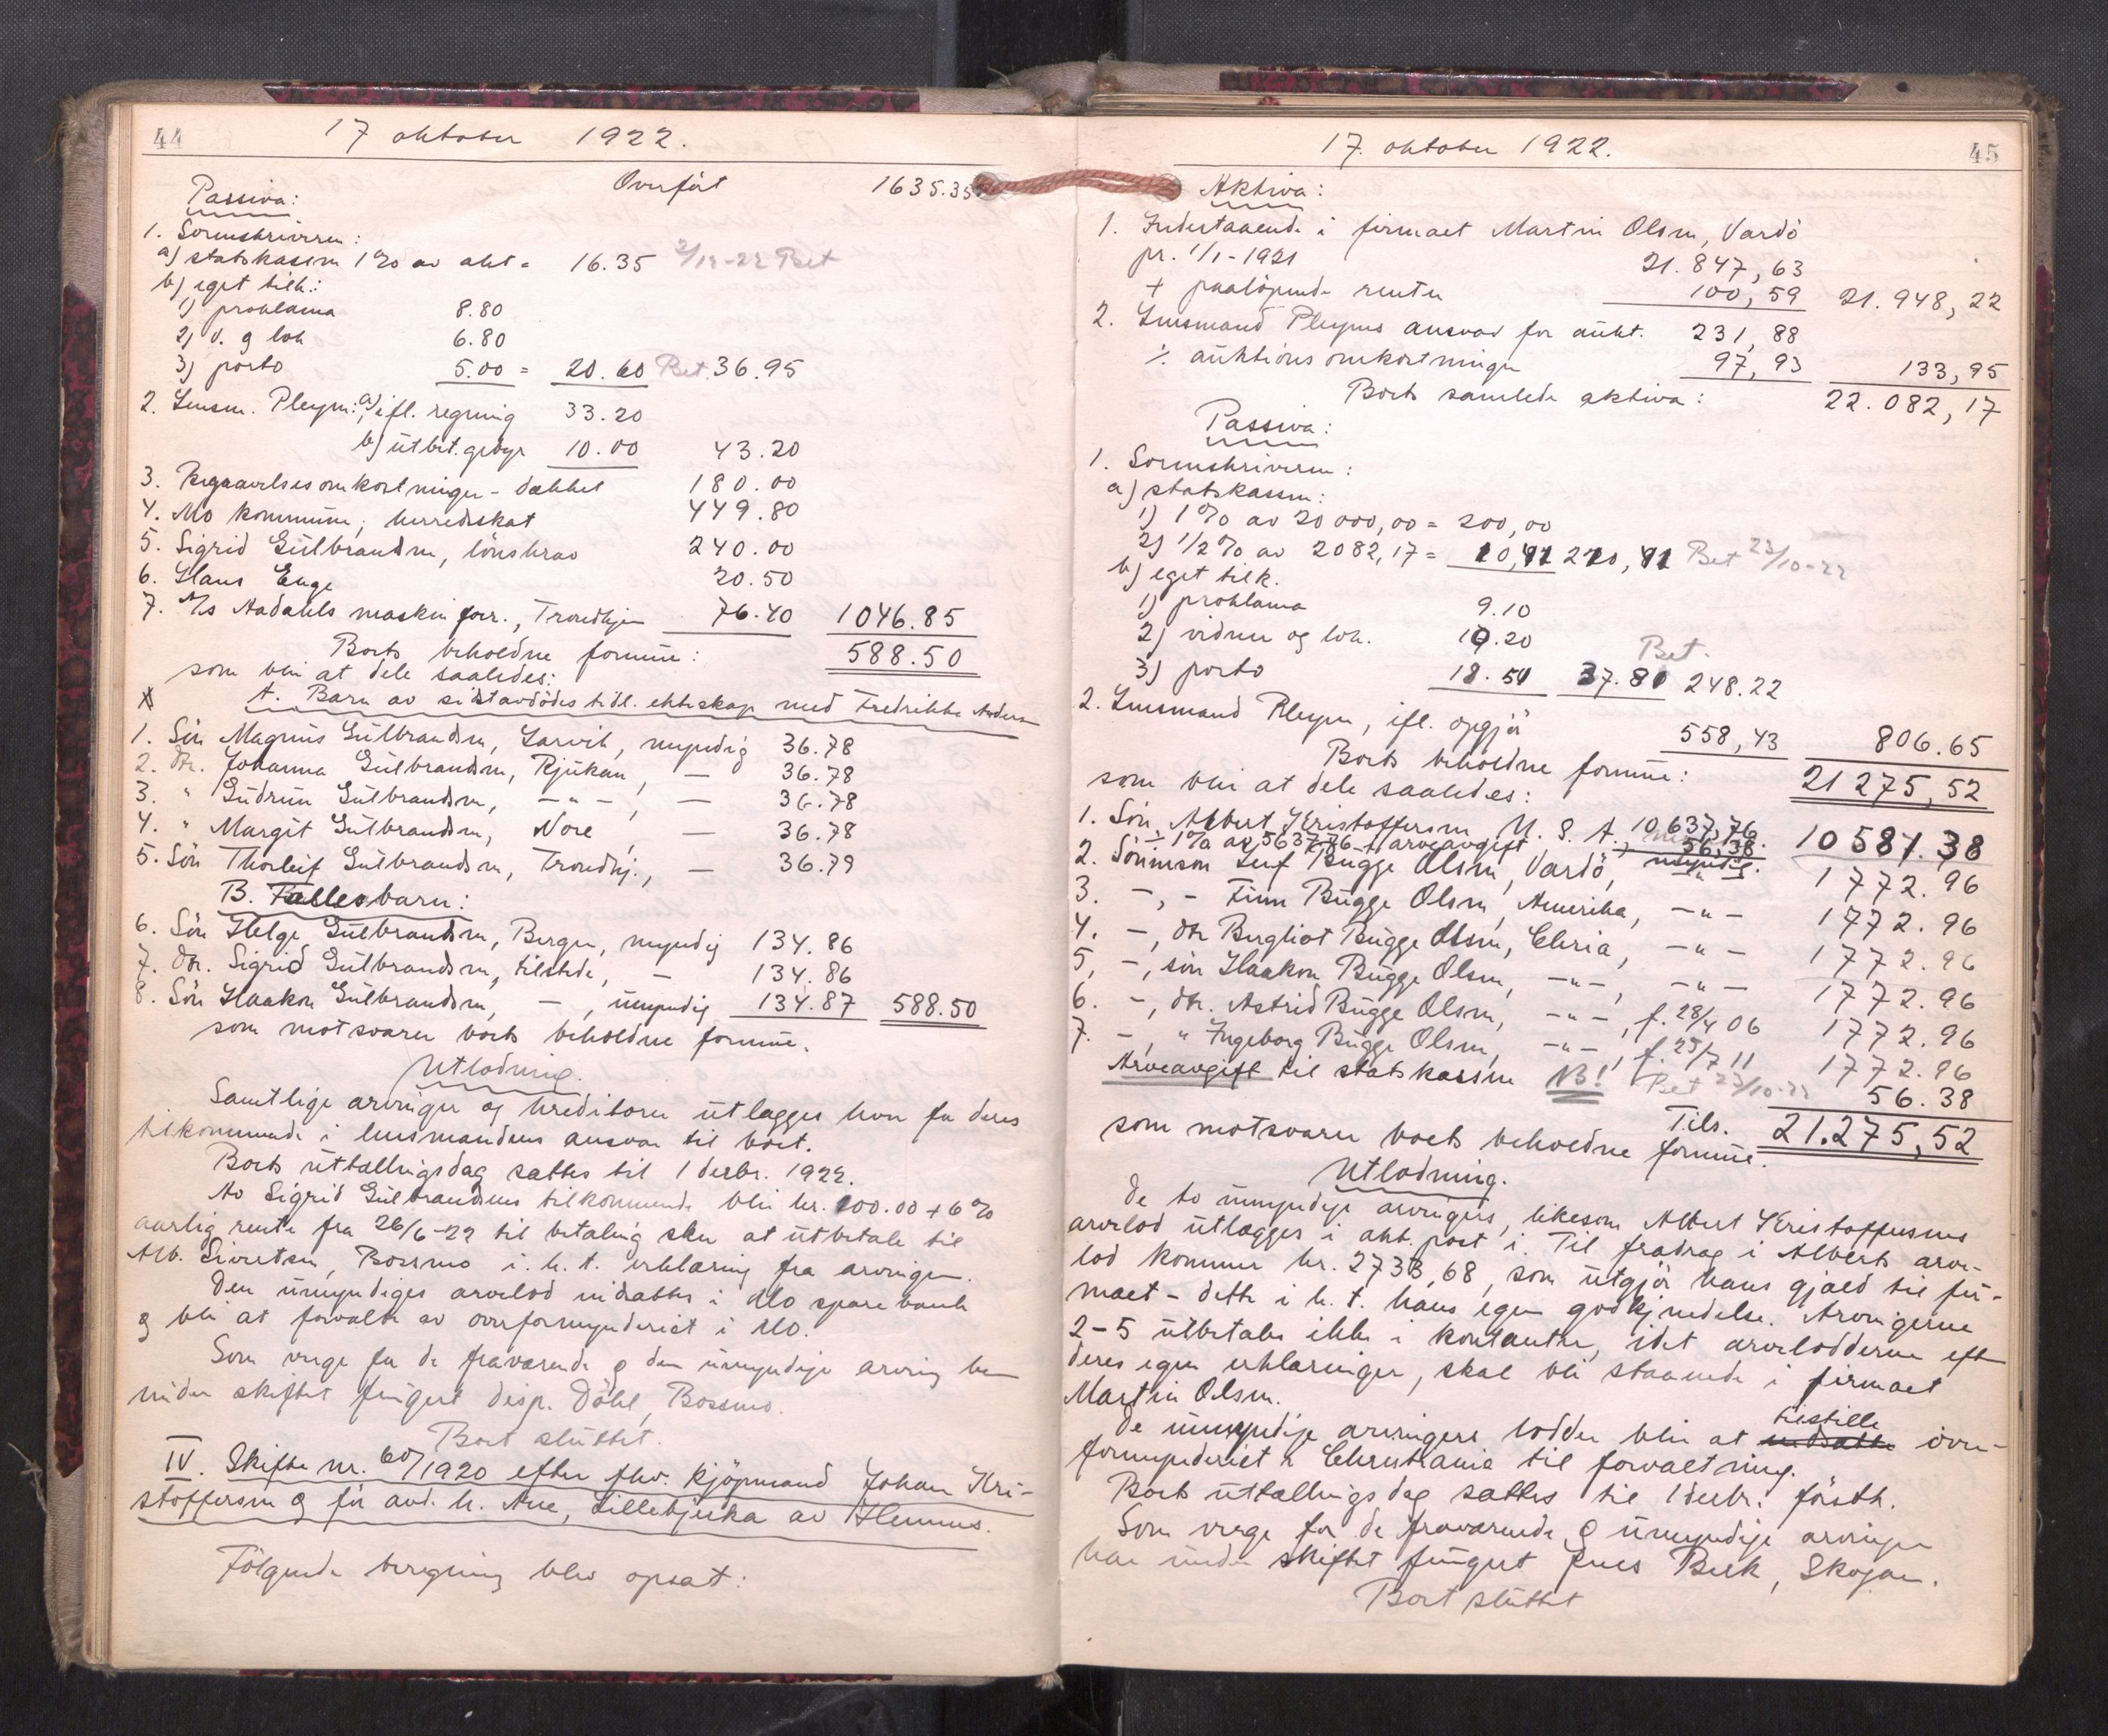 44
17 oktober 1922.
Passiva: Overført 1635.35
1. Sorenskriveren:
a) statskassen 1% av akt = 16.35 2/12-22 Bet
b) eget tilk.:
1) proklama 8.80
2) v. og lok 6.80
3) porto 5.00 = 20.60 Bet. 36.95
2. Lensm. Pleym: a) ifl. regning 33.20
b) utbet. gebyr 10.00 43.20
3. Begravelsesomkostninger - dækket 180.00
4. Mo kommune, herredskat 449.80
5. Sigrid Gülbrandsen, lønskrav 240.00
6. Hans Enge 20.50
7. A/s Aadahls maskinforr., Trondhjem 76.40 1046.85
Boets beholdne formue: 588.50
som blir at dele saaledes:
A. Barn av sidstavdødes tidl. ekteskap med Fredrikke Anders
1. Søn Magnus Gülbrandsen, Larvik, myndig 36.78
2. dtr. Johanna Gülbrandsen, Rjukan, — 36.78
3. " Gudrun Gülbrandsen, — " —, — 36.78
4. " Margit Gülbrandsen, Nore, — 36.78
5. Søn Thorleif Gülbrandsen, Trondhj., — 36.79
B. Fællesbarn:
6. Søn Helge Gülbrandsen, Bergen, myndig 134.86
7. Dtr. Sigrid Gülbrandsen, tilstede, — 134.86
8. Søn Haakon Gülbrandsen, —, umyndig 134.87 588.50
som motsvarer boets beholdne formue.
Utlodning.
Samtlige arvinger og kreditorer utlægges hver for deres
tilkommende i lensmandens ansvar til boet.
Boets uttællingsdag sættes til 1 decbr. 1922.
Av Sigrid Gülbrandsens tilkommende blir kr. 100.00 + 6%
aarlig rente fra 26/6-22 til betaling sker at utbetale til
Alb. Sivertsen, Bossmo i. h. t. erklæring fra arvingen.
Den umyndiges arvelod indsættes i Mo sparebank
og blir at forvalte av overformynderiet i Mo.
Som verge for de fraværende og den umyndige arving har
under skiftet fungert disp. Döhl, Bossmo.
Boet sluttet.
IV. Skifte nr. 60/1920 efter fhv. kjøpmand Johan Kri-
stoffersen og før avd. h. Ane, Lillebjerka av Hemnes.
Følgende beregning blev opsat:
45
17. oktober 1922.
Aktiva:
1. Indestaaende i firmaet Martin Olsen, Vardö
pr. 1/1-1921 21.847,63
+ paaløpende renter 100,59 21.948,22
2. Lensmand Pleyms ansvar for aukt. 231,88
÷ auktionsomkostninger 97,93 133,95
Boets samlede aktiva: 22.082,17
Passiva:
1. Sorenskriveren:
a) statskassen:
1) 1% av 20000,00 = 200,00
2) 1/2% av 2082,17 = 10,41 210,41 Bet 23/10-22
b) eget tilk.
1) proklama 9.10
2) vidner og lok. 10.20
3) porto 18.50 37.81 Bet. 248.22
2. Lensmand Pleym, ifl. opgjør 558,43 806.65
Boets beholdne formue: 21275,52
som blir at dele saaledes:
1. Søn Albert Kristoffersen, U. S. A., 10637,76
÷ 1% av 5637.76 i arveavgift 56,38 10581.38
2. Sønnesøn Leif Bugge Olsen, Vardö, myndig. 1772.96
3. —, — Finn Bugge Olsen, Amerika, — " — 1772.96
4. —, dtr Bergliot Bugge Olsen, Chria, — " — 1772.96
5. —, søn Haakon Bugge Olsen, — " —, — " — 1772.96
6. —, dtr. Astrid Bugge Olsen, — " —, f. 28/4 06 1772.96
7. —, " Ingeborg Bugge Olsen, — " —, f. 25/7 11 1772.96
Arveavgift til statskassen NB! Bet 23/10-22 56.38
Tils. 21.275,52
som motsvarer boets beholdne formue.
Utlodning.
De to umyndige arvingers, likesom Albert Kristoffersens
arvelod utlægges i akt. post 1. Til fradrag i Alberts arve-
lod kommer kr. 2733,68, som utgjør hans gjæld til fir-
maet - dette i h. t. hans egen godkjendelse. Arvingerne
2-5 utbetales ikke i kontanter, idet arveloddene efter
deres egne erklæringer, skal bli staaende i firmaet
Martin Olsen.
De umyndige arvingers lodder blir at indsætte tilstille over-
formynderiet i Christiania til forvaltning.
Boets uttællingsdag sættes til 1 decbr. førstk.
Som verge for de fraværende og umyndige arvinger
har under skiftet fungert Jens Berk, Skogan.
Boet sluttet